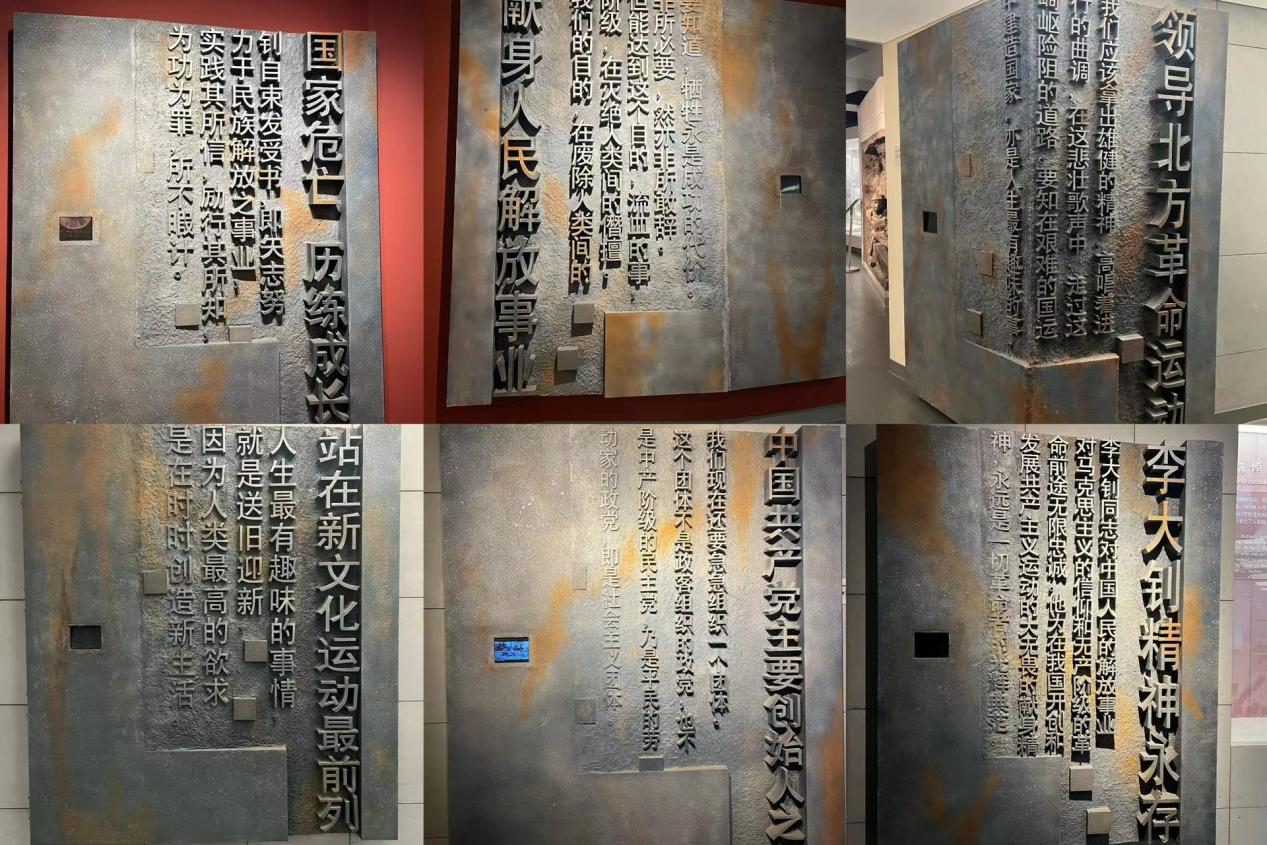 国家危亡 历练成长
钊自束发受书，即矢志努
力于民族解放之事业，
实践其所信，励行其所知，
为功为罪，所不暇计。
献身人民解放事业
我们的目的，在废除人类间的
阶级，在灭绝人类间的僭擅，
但能达到这个目的，流血的事，
非所必要，然亦非所敢辞。
要知道，牺牲永是成功的代价。
领导北方革命运动
我们应该拿出雄健的精神，高唱着进
行的曲调，在这悲壮歌声中，走过这
崎岖险阻的道路，要知在艰难的国运
中建造国家，亦是人生最有趣味的事
站在新文化运动最前列
人生最有趣味的事情
就是送旧迎新
因为人类最高的欲求
是在时时创造新生活
中国共产党主要创始人之
我们现在还要急急组织一个团体。
这个团体不是政客组织的政党，也不
是中产阶级的民主党，乃是平民的劳
动家的政党，即是社会主义团体。
李大钊精神永存
李大钊同志对中国人民的解放事业
对马克思主义的信仰和无产阶级的革
命前途无限忠诚，他为在我国开创和
发展共产主义运动的大无畏的献身精
神，永远是一切革命者的光辉典范